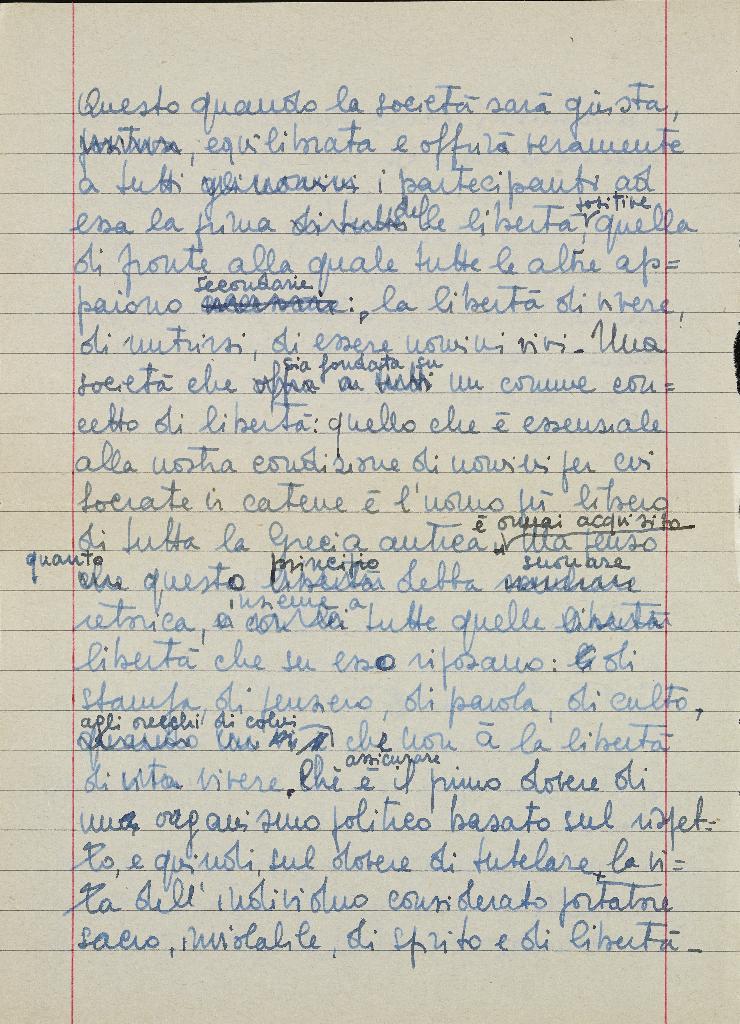 Questo quando la società sarà giusta,
positiva, equilibrata e offrirà veramente
a tutti gli uomini i partecipanti ad
positive
essa la prima delle libertà, quella
di fronte alla quale tutte le altre ap=
secondarie
paiono : la libertà di vivere,
di nutrirsi, di essere uomini vivi. Una
sia fondata su
società che offra a tutti un comune con=
cetto di libertà: quello che è essenziale
alla nostra condizione di uomini per cui
Socrate in catene è l'uomo più libero
è ormai acquisito
di tutta la Grecia antica. Ma penso
quanto principio suonare
che questo libertà debba
insieme a
retorica, e con lei tutte quelle libertà
libertà che su esso riposano: di
stampa, di pensiero, di parola, di culto,
agli orecchi di colui
che non à la libertà
assicurare
di vita vivere. Chè è il primo dovere di
una organismo politico basato sul rispet-
to, e quindi, sul dovere di tutelare, la vi=
ta dell'individuo considerato portatore
sacro, inviolabile, di spirito e di libertà.